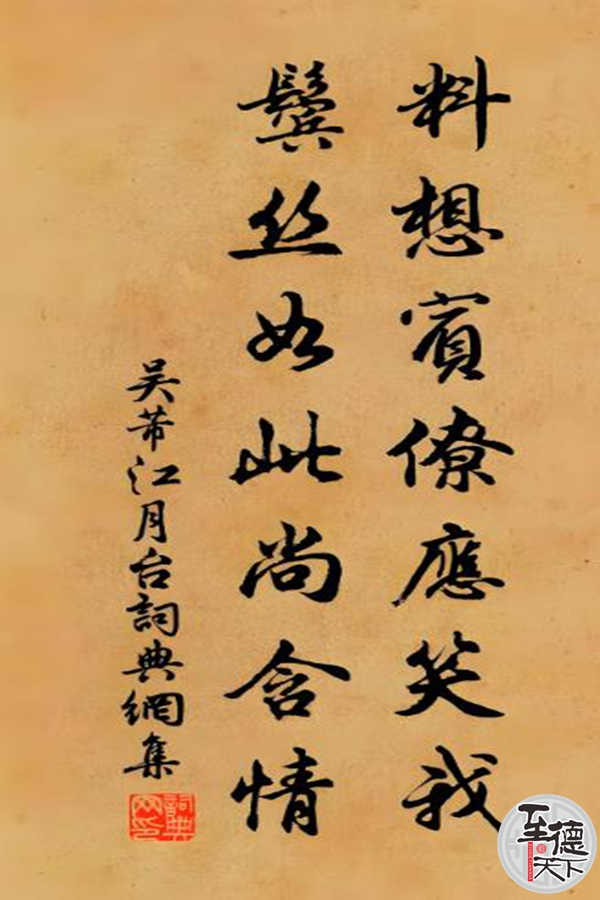 料想賓僚應笑我
鬢丝如此尚含情
吴芾江月台詞典網集
詞典网印
至德天下